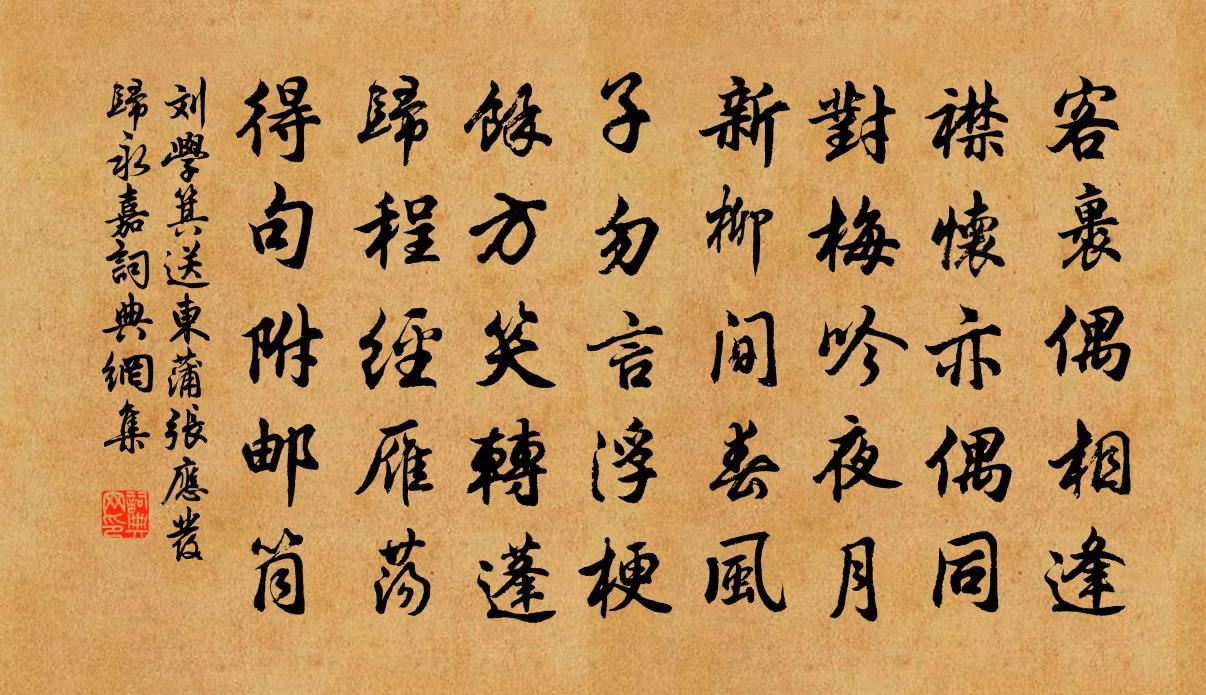 客裏偶相逢
襟懷亦偶同
對梅吟夜月
新柳間春風
子勿言浮梗
餘方笑轉蓬
歸程經雁蕩
得句附邮筒
刘學箕送東蒲張應發
歸永嘉詞典網集
詞典网印